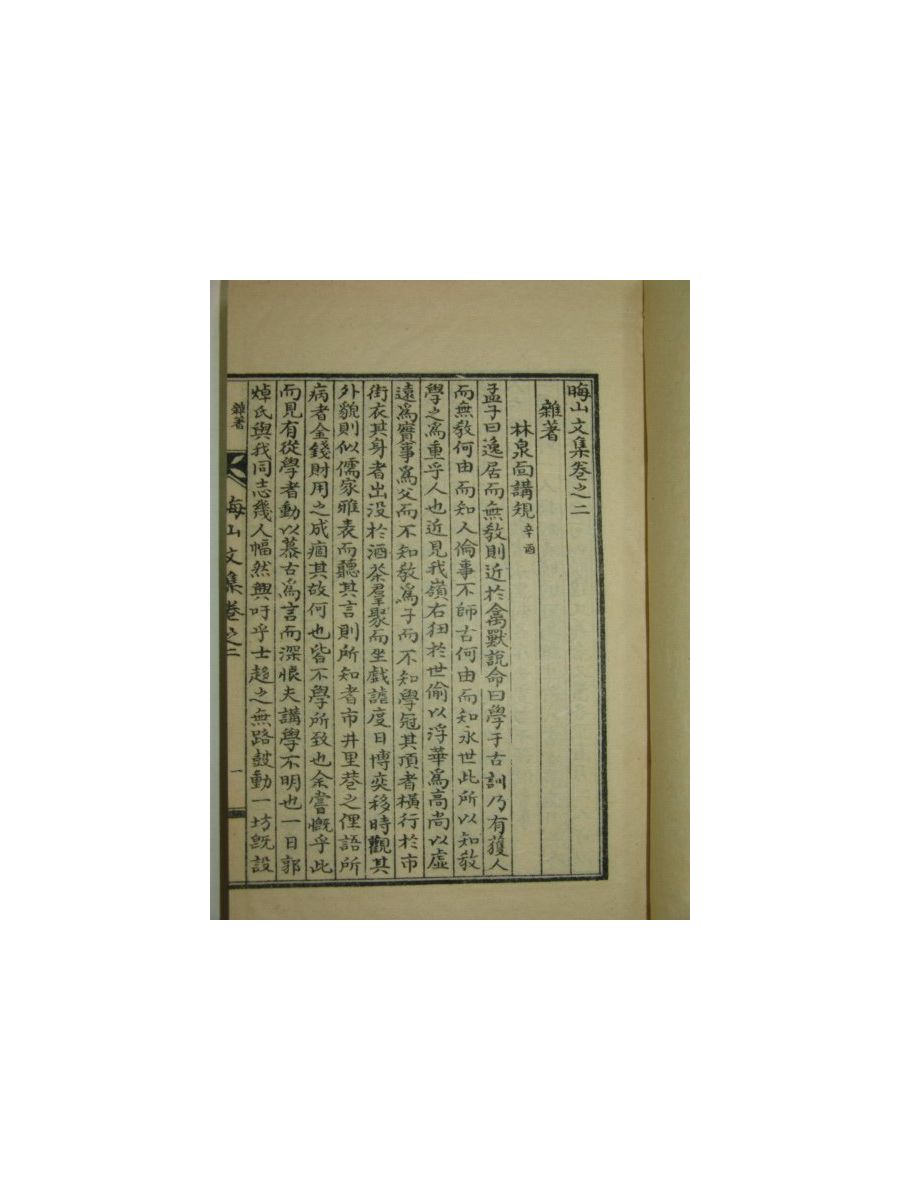 晦山文集卷之二
雜著
林泉面講規 辛酉
孟子曰逸居而無敎則近於禽獸說命曰學于古訓乃有獲人
而無敎何由而知人倫事不師古何由而知永世此所以知敎
學之爲重乎人也近見我嶺右狃於世偷以浮華爲高尚以虛
遠爲實事爲父而不知敎爲子而不知學冠其頂者橫行於市
街衣其身者出没於酒茶羣聚而坐戲謔度日博奕移時觀其
外貌則似儒家雅表而聽其言則所知者市井里巷之俚語所
病者金錢財用之成痼其故何也皆不學所致也余嘗慨乎此
而見有從學者動以慕古爲言而深恨夫講學不明也一日郭
焯氏與我同志幾人幅然興吁乎士趍之無路鼓動一坊旣設
雜著
晦山文集卷之二
一